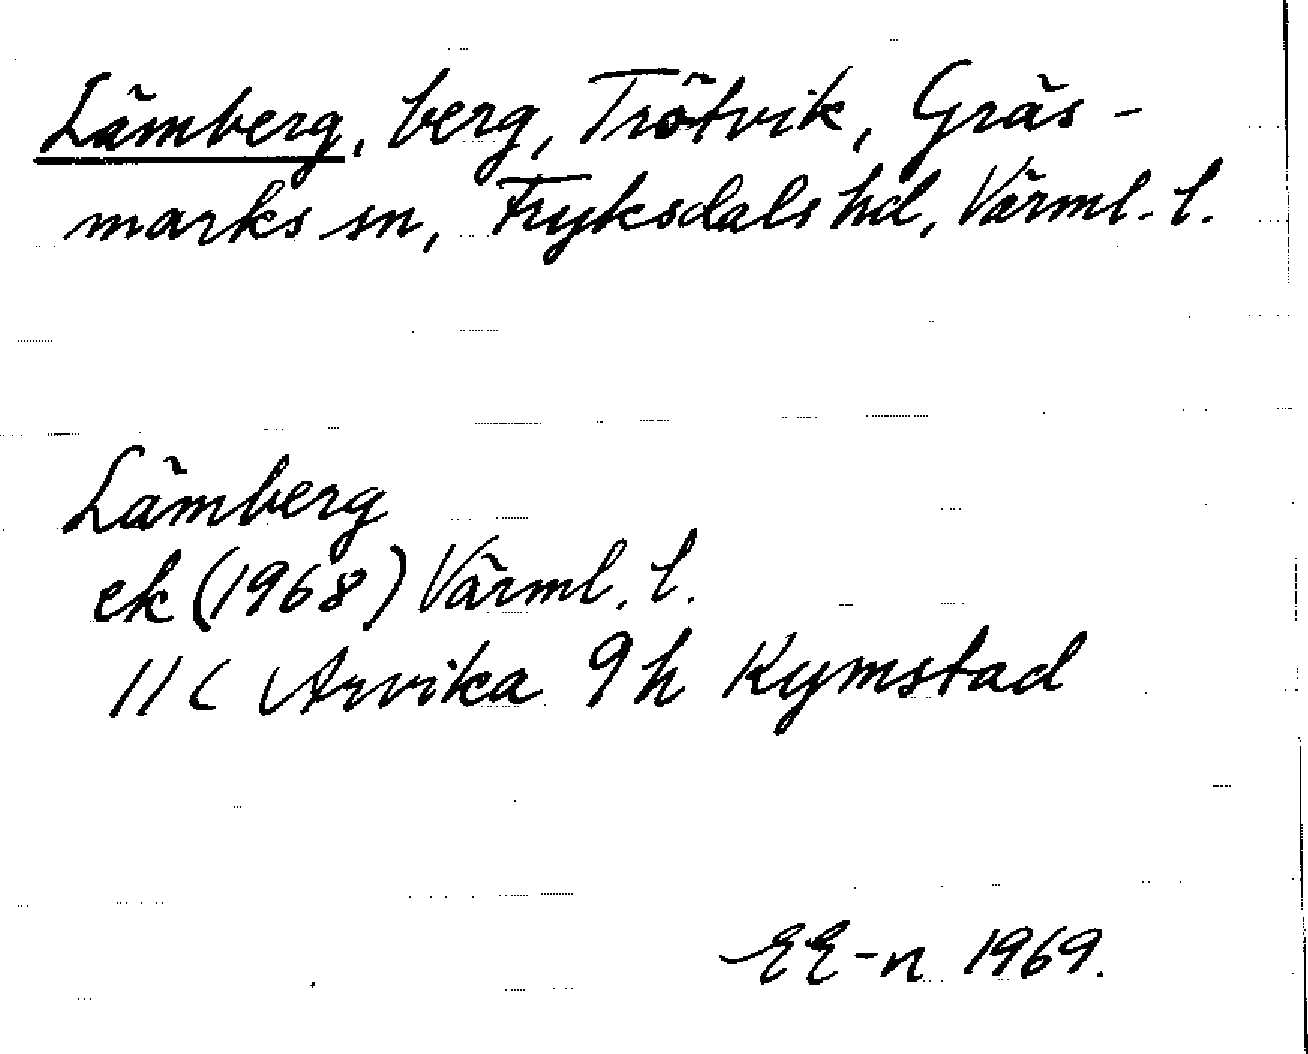 Lämberg, berg, Trötvik, Gräs-
marks sn, Fryksdals hd, Värml. l.
Lämberg
ek (1968) Värml. l.
11C Arvika 9h Kymstad
EE-n 1969.